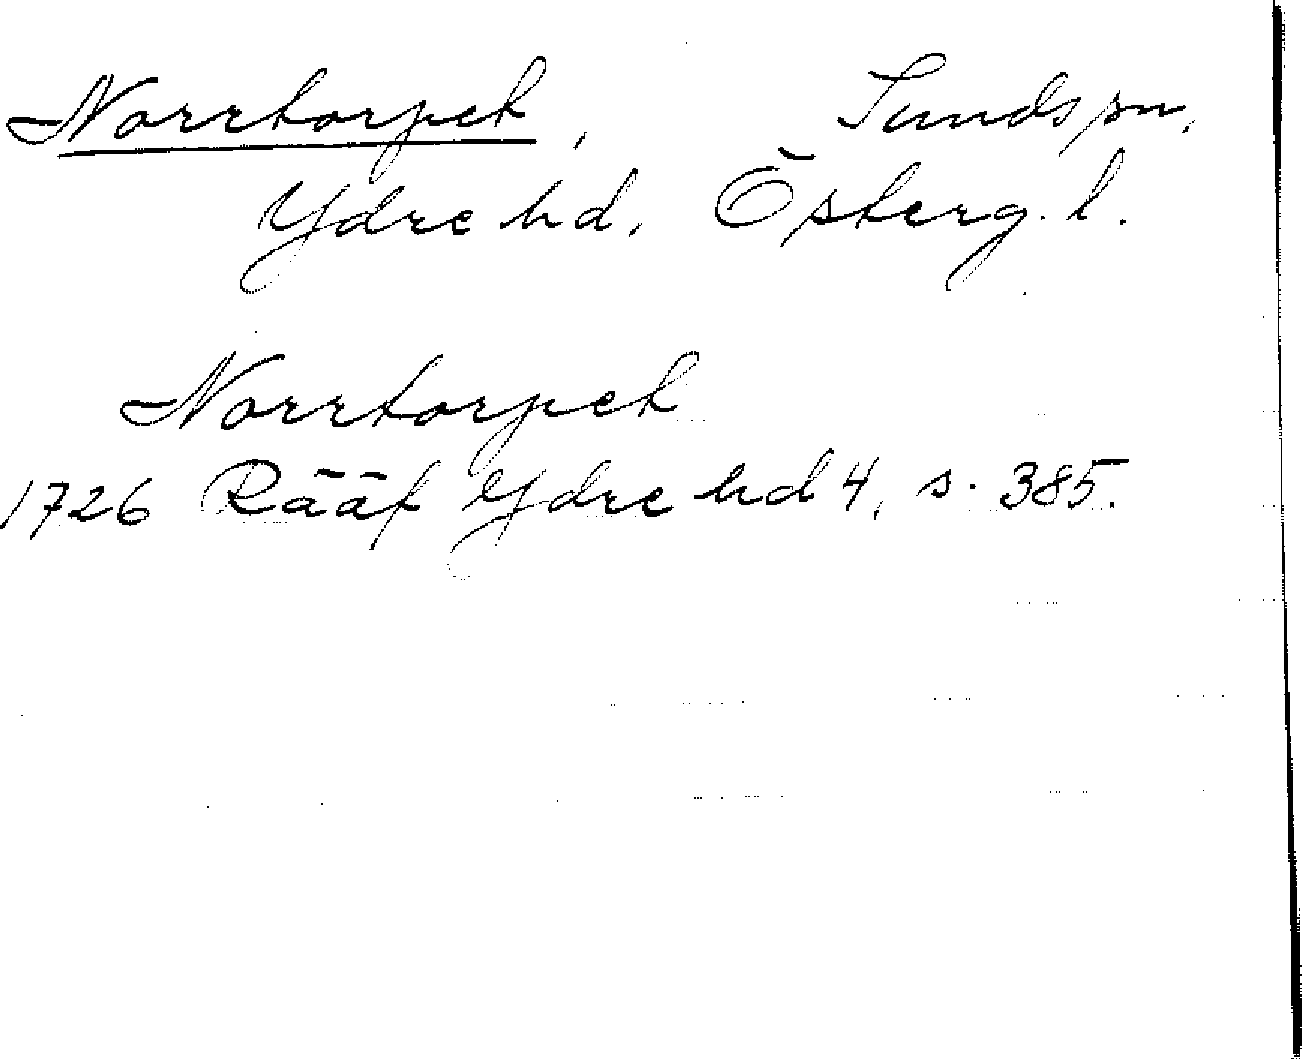 Norrtorpet, Sunds sn,
Ydre hd, Österg. l.
Norrtorpet
1726 Rääf Ydre hd 4, s. 385.